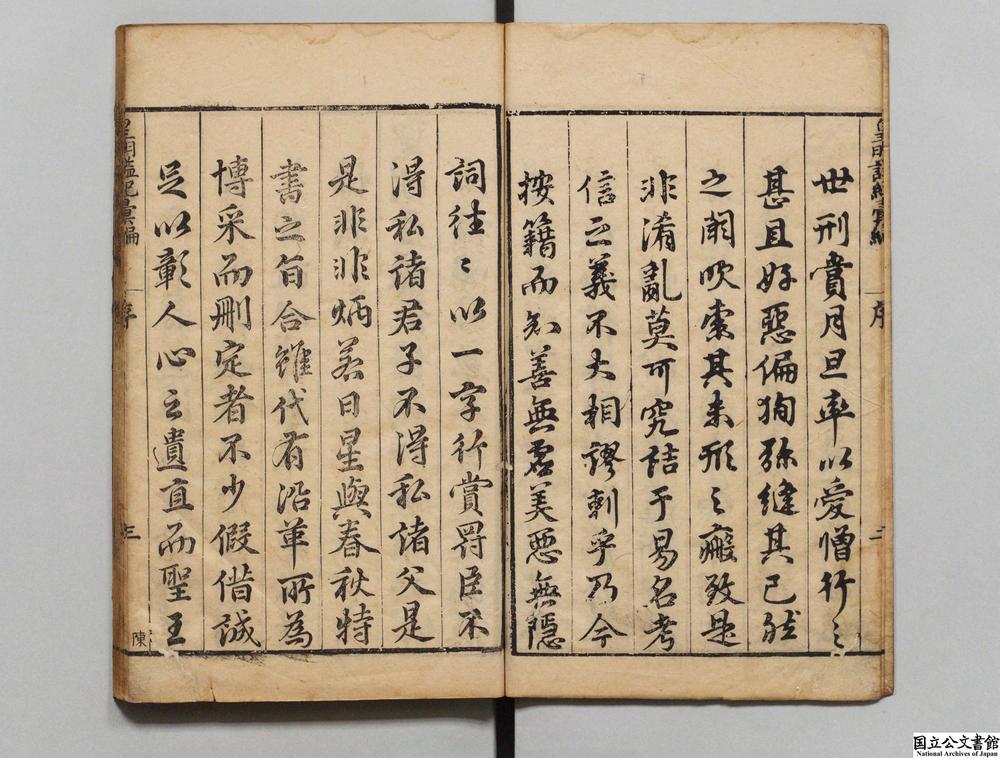 世刑賞月旦率以愛憎行之
甚且好惡偏狥弥縫其已然
之闕吹索其未形之瘢致是
非淆亂莫可究詰于易名考
信之義不大相謬剌乎乃今
按籍而知善無虛美惡無隱
詞往〻以一字行賞罰臣不
得私諸君子不得私諸父是
是非非炳若日星與春秋特
書之旨合雖代有沿革所為
博采而刪定者不少假借誠
足以彰人心之遺直而聖王
序
二
皇明謚紀彙編
序
三
陳
国立公文書館
National Archives of Japan